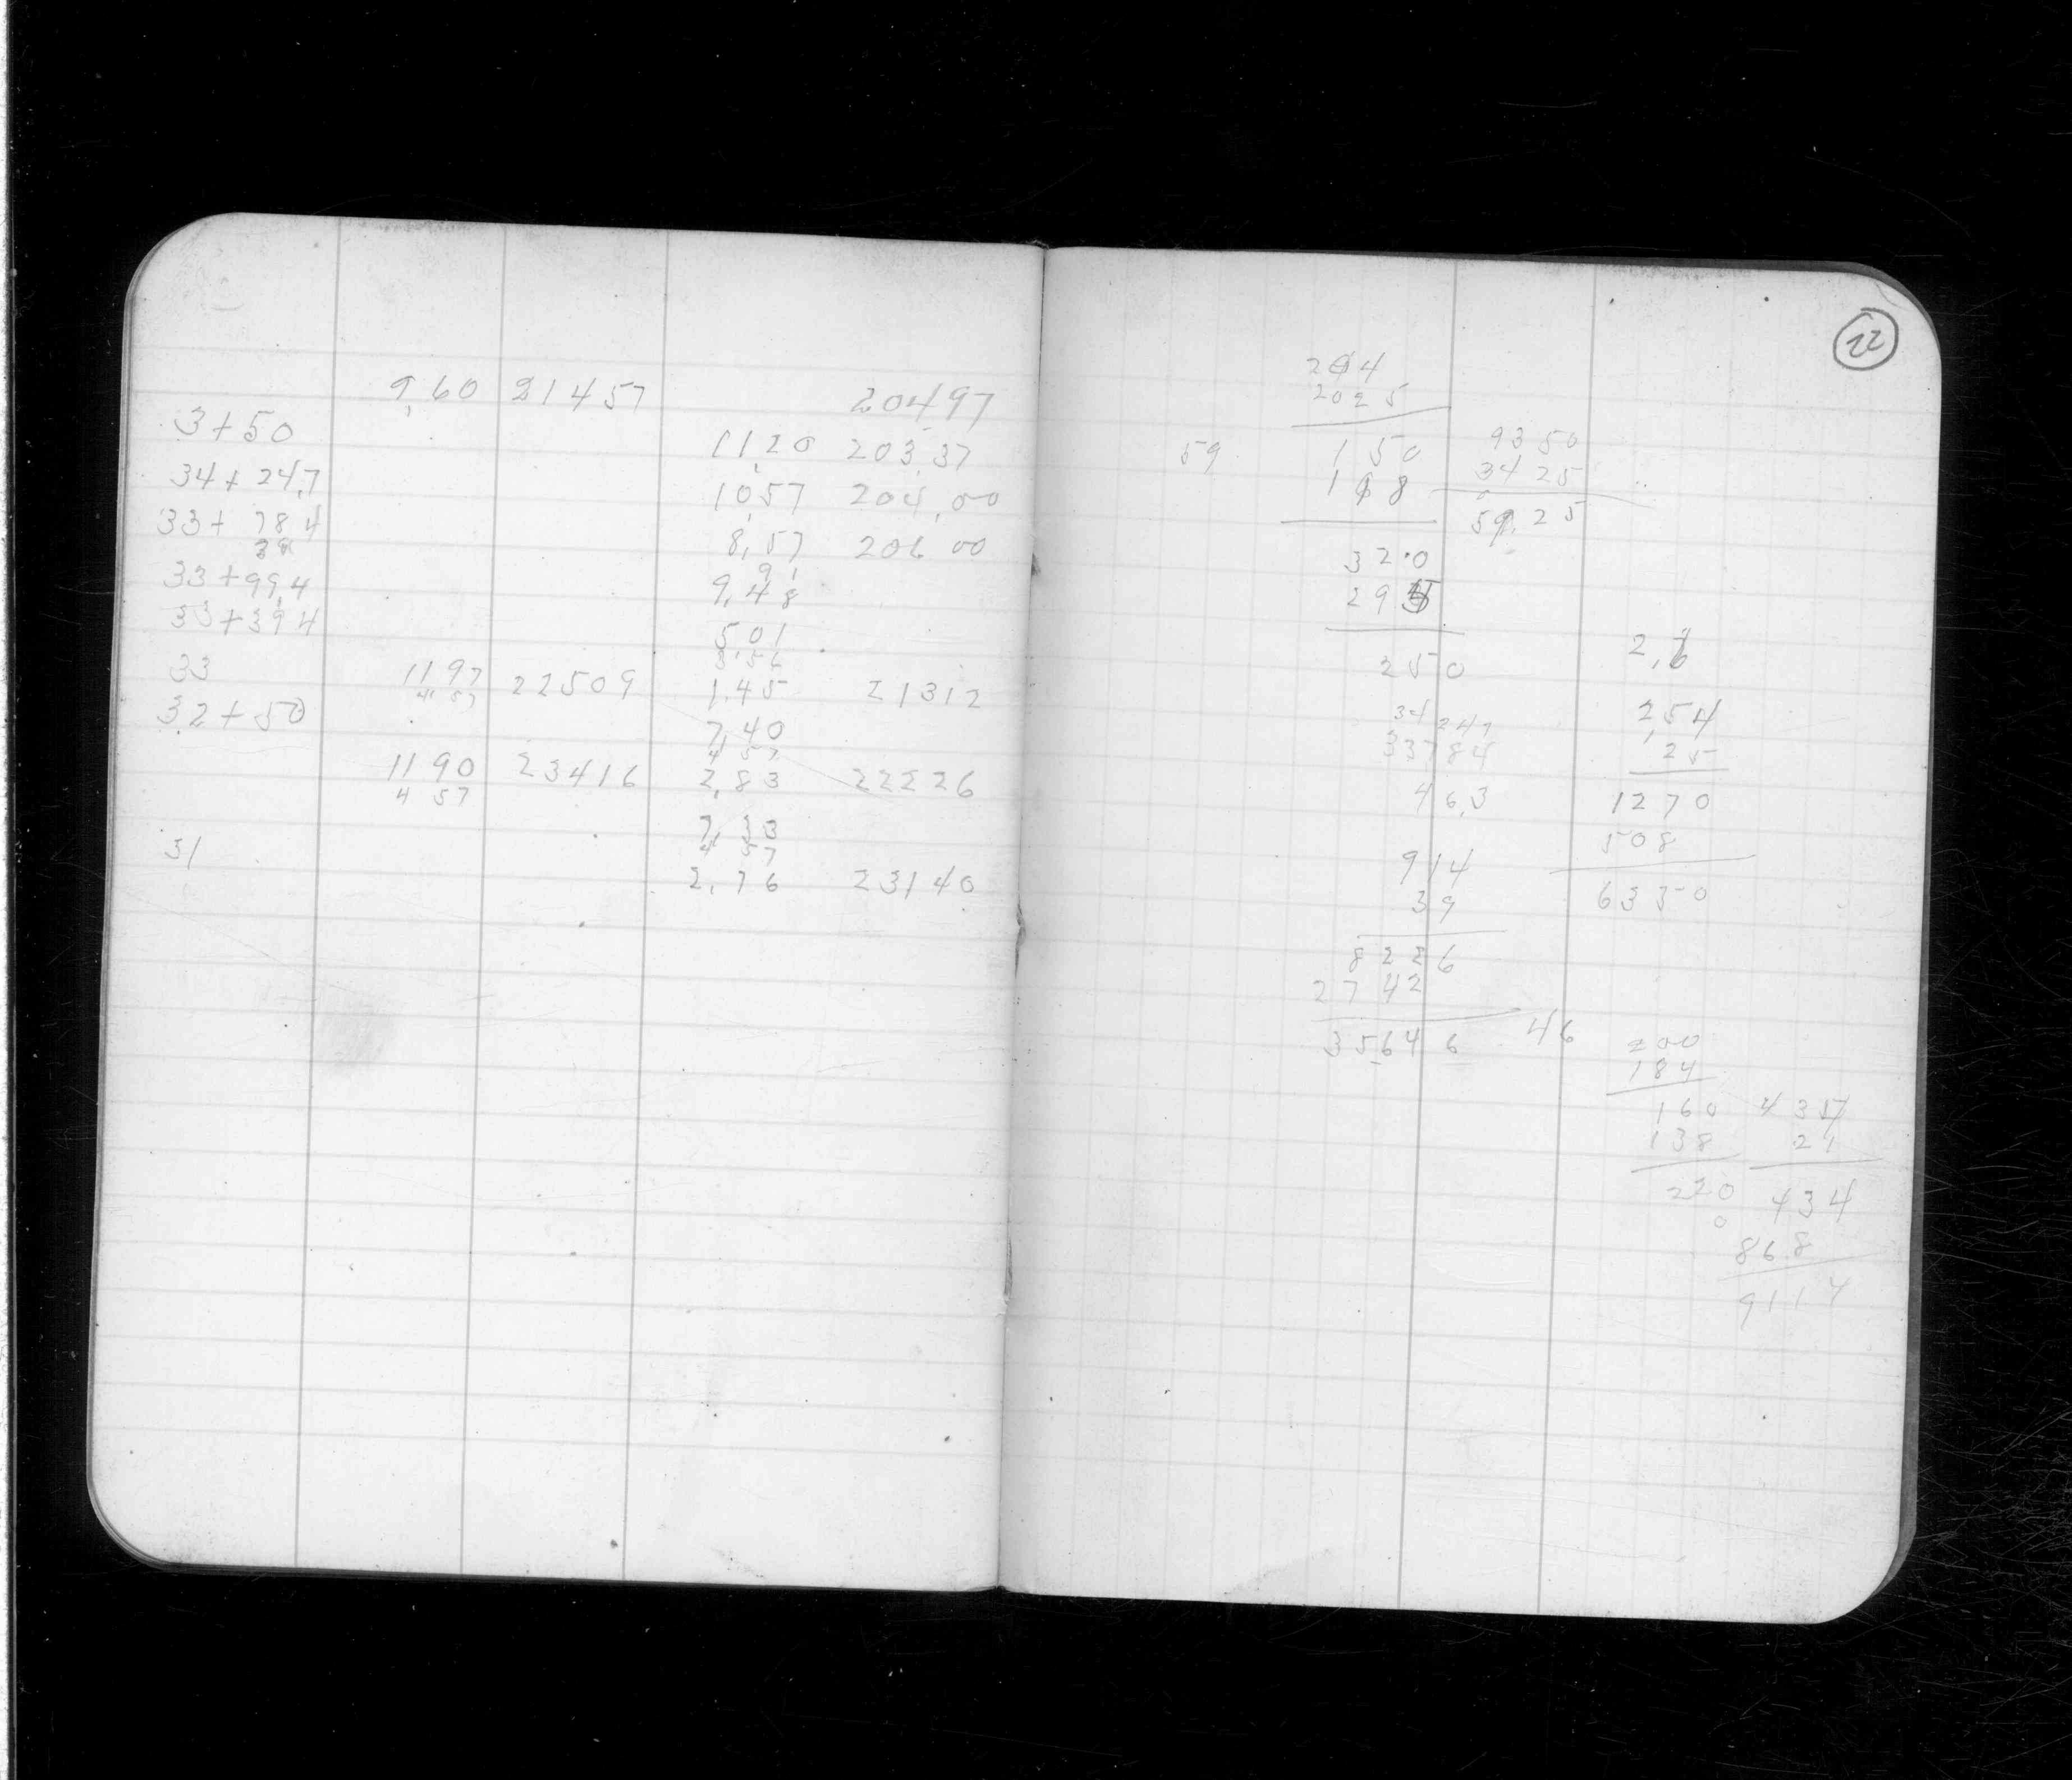 9,60 21457 20497
3+50 11,20 203,37
34+24,7 10,57 204,00
33+ 78,4 8,57 206 00
38
91
33+99,4 9,48
33+394 5,01
33 1197 22509 1.45 21312
4,57
32+50 7,40
4 57
1190 23416 2,83 22226
4 57
7,33
4 57
31 2,76 23140
22
204
2025
59 150 9350
168 3425
5925
320
295
250
2,6
34 247
33784
463
254
25
1270
508
6350
914
39
8226
2742
35646 46
200
184
160 434
138 21
220 434
0
868
9114